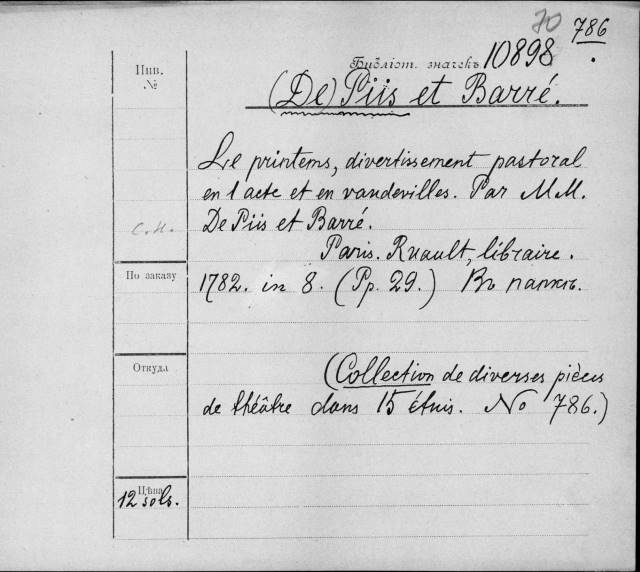 70 786
Инв.
№
Библіот. значекъ 10898
(De) Piis et Barré.
Le printems, divertissement pastoral
en 1 acte et en vaudevilles. Par M.M.
De Piis et Barré.
С.Н.
Paris. Ruault, libraire.
По заказу
1782. in 8. (Pp. 29.) Въ папкѣ.
Откуда
(Collection de diverses pièces
de théâtre dans 15 étuis. No 786.)
Цѣна
12 sols.